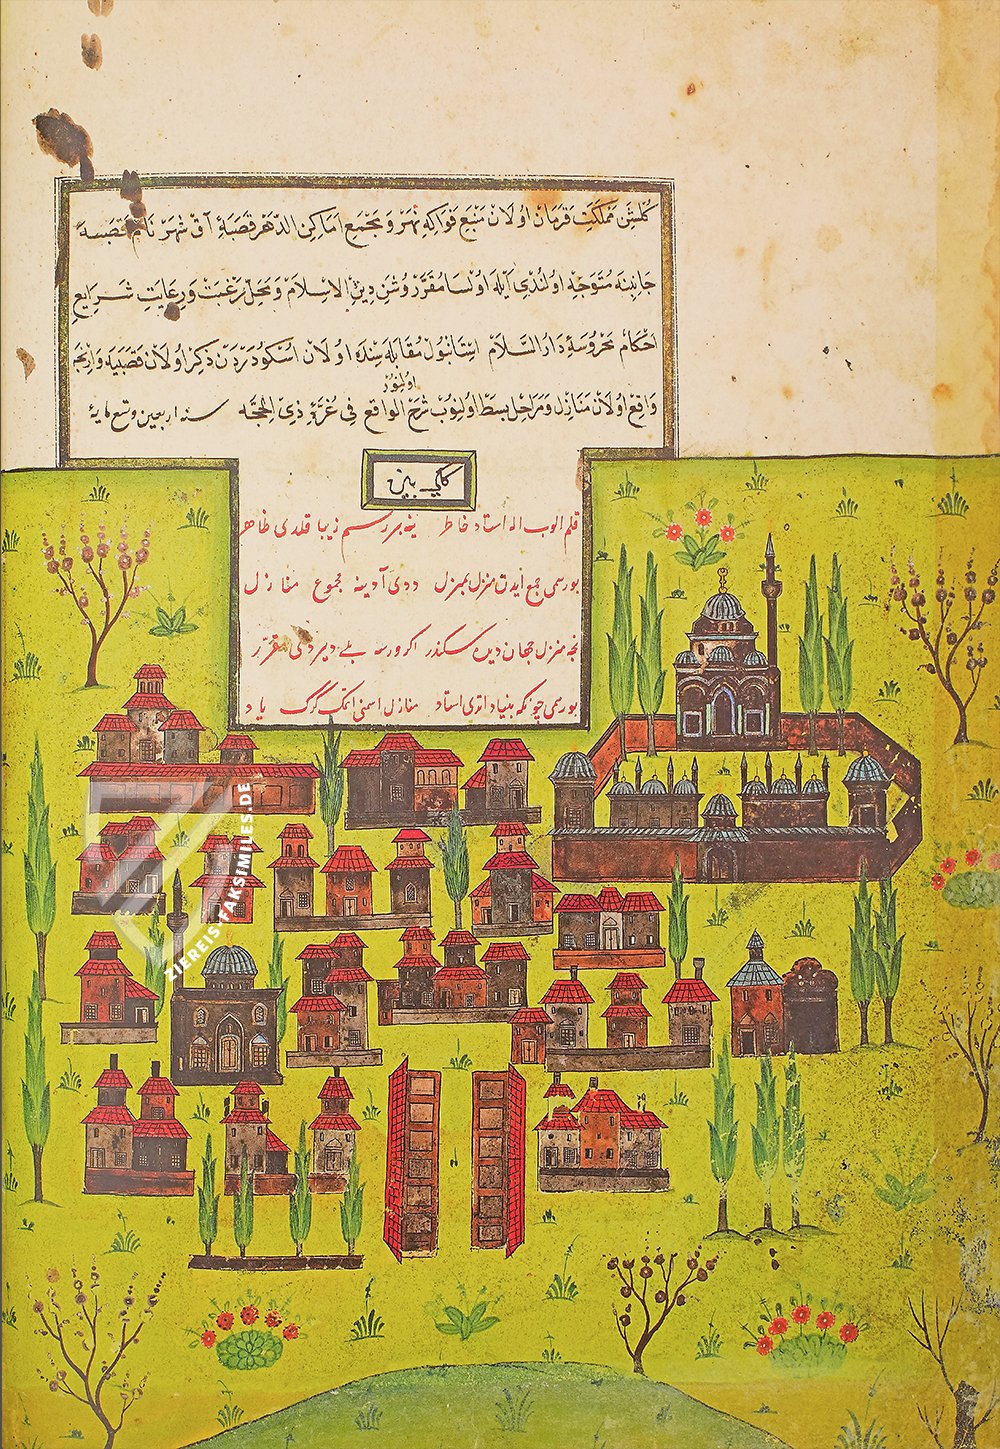 گلشن مملکت قرمان اولان منبع فواکه نهر و مجمع اماکن الدهر قصبهٔ آق شهر نام قصبه
جانبنه متوجه اولندی آیله اولسا مقرر روشن دین الاسلام و محل رغبت و رعایت شرایع
احکام محروسهٔ دار السلام استانبول مقابله سنده اولان اسکودردن ذکر اولان قصبیه وارنجه
اولنور
واقع اولان منازل و مراحل بسط اولنوب شرح الواقع فی غرّة ذی الحجّه سنه اربعین و تسعمایة
قلم الوب اله استاد خاطر ینه بر رسم زیبا قلدی ظاهر
بو رسمی جمع ایدن منزل بمنزل ددی آدینه مجموع منازل
نجه منزل جهان دیده سکندر اکر ورسه بلی دیردی مقرّر
بو رسمی چونکه بنیاد اتدی استاد منازل اسمنی اتمک گرک یاد
ZIEREIS-FAKSIMILES.DE